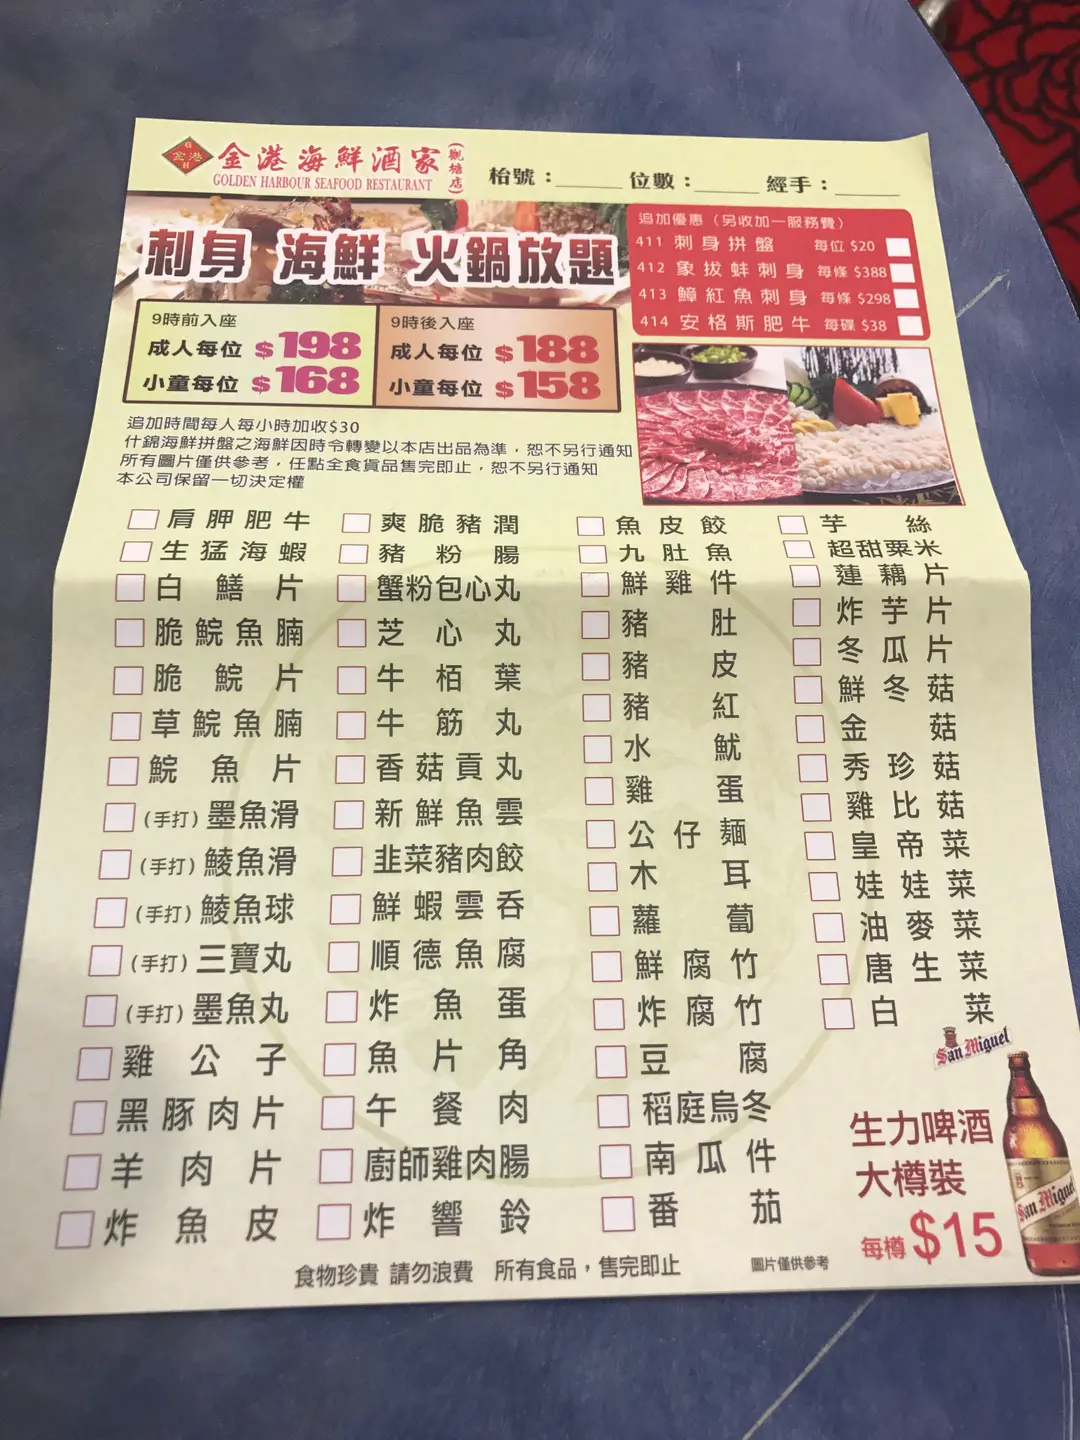 金港海鮮酒家(觀塘店)
GOLDEN HARBOUR SEAFOOD RESTAURANT
枱號：______ 位數：______ 經手：______
刺身 海鮮 火鍋放題
9時前入座
成人每位 $198
小童每位 $168
9時後入座
成人每位 $188
小童每位 $158
追加優惠（另收加一服務費）
411 刺身拼盤 每位 $20
412 象拔蚌刺身 每條 $388
413 鱆紅魚刺身 每條 $298
414 安格斯肥牛 每碟 $38
追加時間每人每小時加收$30
什錦海鮮拼盤之海鮮因時令轉變以本店出品為準，恕不另行通知
所有圖片僅供參考，任點全食貨品售完即止，恕不另行通知
本公司保留一切決定權
肩胛肥牛
生猛海蝦
白鱔片
脆鯇魚腩
脆鯇片
草鯇魚腩
鯇魚片
(手打)墨魚滑
(手打)鯪魚滑
(手打)鯪魚球
(手打)三寶丸
(手打)墨魚丸
雞公子
黑豚肉片
羊肉片
炸魚皮
爽脆豬潤
豬粉腸
蟹粉包心丸
芝心丸
牛栢葉
牛筋丸
香菇貢丸
新鮮魚雲
韭菜豬肉餃
鮮蝦雲吞
順德魚腐
炸魚蛋
魚片角
午餐肉
廚師雞肉腸
炸響鈴
魚皮餃
九肚魚
鮮雞件
豬肚
豬皮
豬紅
水魷
雞蛋
公仔麵
木耳
蘿蔔
鮮腐竹
炸腐竹
豆腐
稻庭烏冬
南瓜件
番茄
芋絲
超甜粟米
蓮藕片
炸芋片
冬瓜片
鮮冬菇
金菇
秀珍菇
雞比菇
皇帝菜
娃娃菜
油麥菜
唐生菜
白菜
San Miguel
生力啤酒
大樽裝
每樽$15
San Miguel
食物珍貴 請勿浪費 所有食品，售完即止
圖片僅供參考